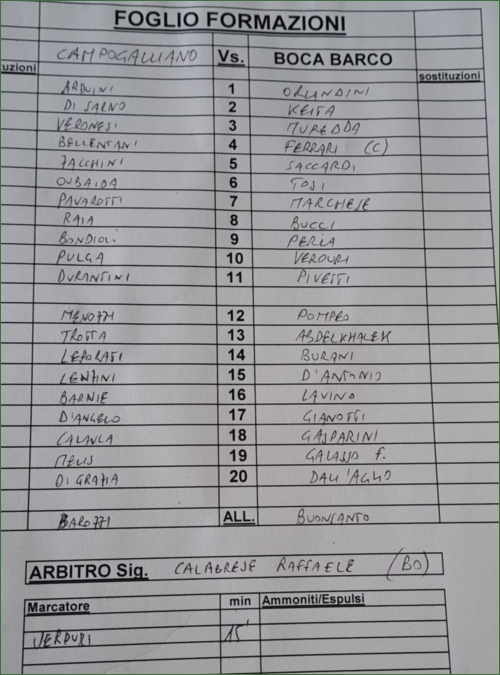 FOGLIO FORMAZIONI
CAMPOGALLIANO Vs. BOCA BARCO
uzioni sostituzioni
ARDUINI 1 ORLANDINI
DI SARNO 2 KEITA
VERONESI 3 MUREDDA
BELLENTANI 4 FERRARI (C)
ZACCHINI 5 SACCARDI
OUBAIDA 6 TOSI
PAVAROTTI 7 MARCHESE
RAIA 8 BUCCI
BONDIOLI 9 PERLA
PULGA 10 VERDURI
DURANTINI 11 PIVETTI
MENOZZI 12 POMPEO
TROTTA 13 ABDELKHALEK
LEPORATI 14 BURANI
LENTINI 15 D'ANTONIO
BARNIE 16 LAVINO
D'ANGELO 17 GIANOTTI
CALANCA 18 GASPARINI
MELIS 19 GALASSO F.
DI GRAZIA 20 DALL'AGLIO
BAROZZI ALL. BUONSANTO
ARBITRO Sig. CALABRESE RAFFAELE (BO)
Marcatore min Ammoniti/Espulsi
VERDURI 15'